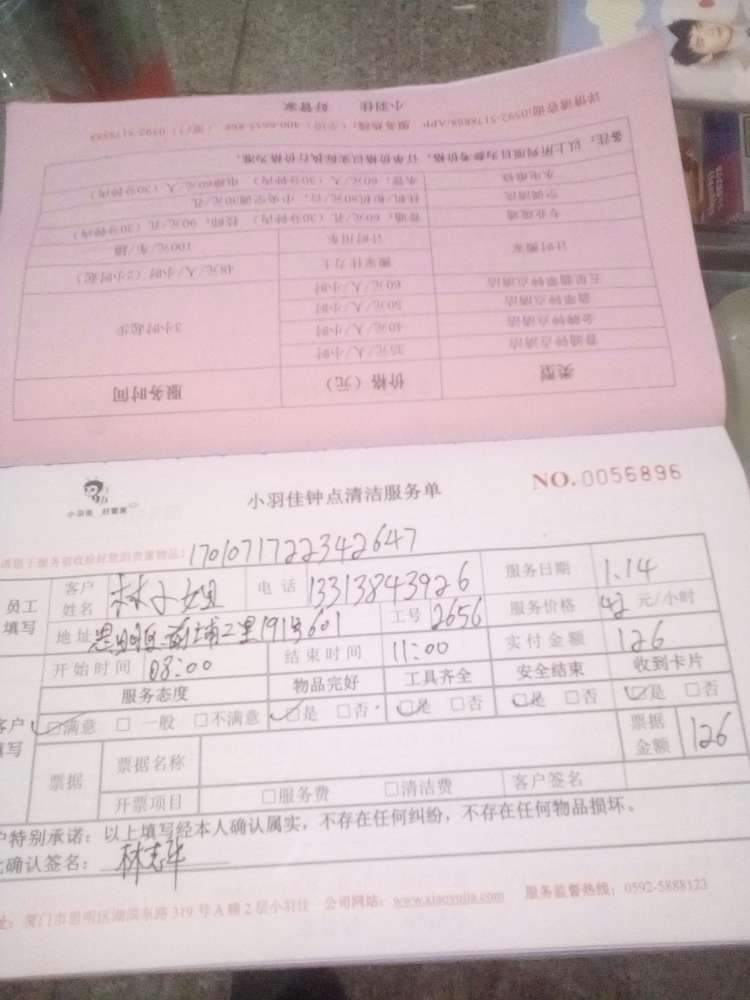 小羽佳 好管家
详情请咨询0592-5178888/APP 服务热线:(全国)400-6633-888 (厦门) 0592-5178888
备注:以上所列项目为参考价格,订单价格以实际执行价格为准。
水电维修 水管:60元/人(30分钟内) 电路60元/人(30分钟内)
空调清洗 挂机/柜机80元/台,中央空调30元/孔
专业疏通 普通:60元/孔(30分钟内) 特殊:90元/孔(30分钟内)
计时搬家 计时用车 100元/车/趟
搬家佳力士 48元/人/小时(2小时起)
五星翡翠钟点清洁 60元/人/小时
翡翠钟点清洁 50元/人/小时
金牌钟点清洁 40元/人/小时
普通钟点清洁 35元/人/小时
3小时起步
类型 价格(元) 服务时间
小羽佳 好管家
小羽佳钟点清洁服务单
NO.0056896
请您于服务前收捡好您的贵重物品: 1701071722342647
员工填写
客户姓名 林小姐 电话 13313843926 服务日期 1.14
地址 思明区前埔二里191号601 工号 2656 服务价格 42 元/小时
开始时间 08:00 结束时间 11:00 实付金额 126
服务态度 物品完好 工具齐全 安全结束 收到卡片
客户填写
☑满意 □一般 □不满意 ☑是 □否 ☑是 □否 ☑是 □否 ☑是 □否
票据 票据名称 票据金额 126
开票项目 □服务费 □清洁费 客户签名
户特别承诺:以上填写经本人确认属实,不存在任何纠纷,不存在任何物品损坏。
此确认签名:
址:厦门市思明区湖滨东路319号A幢2层小羽佳 公司网站:www.xiaoyujia.com 服务监督热线:0592-5888123